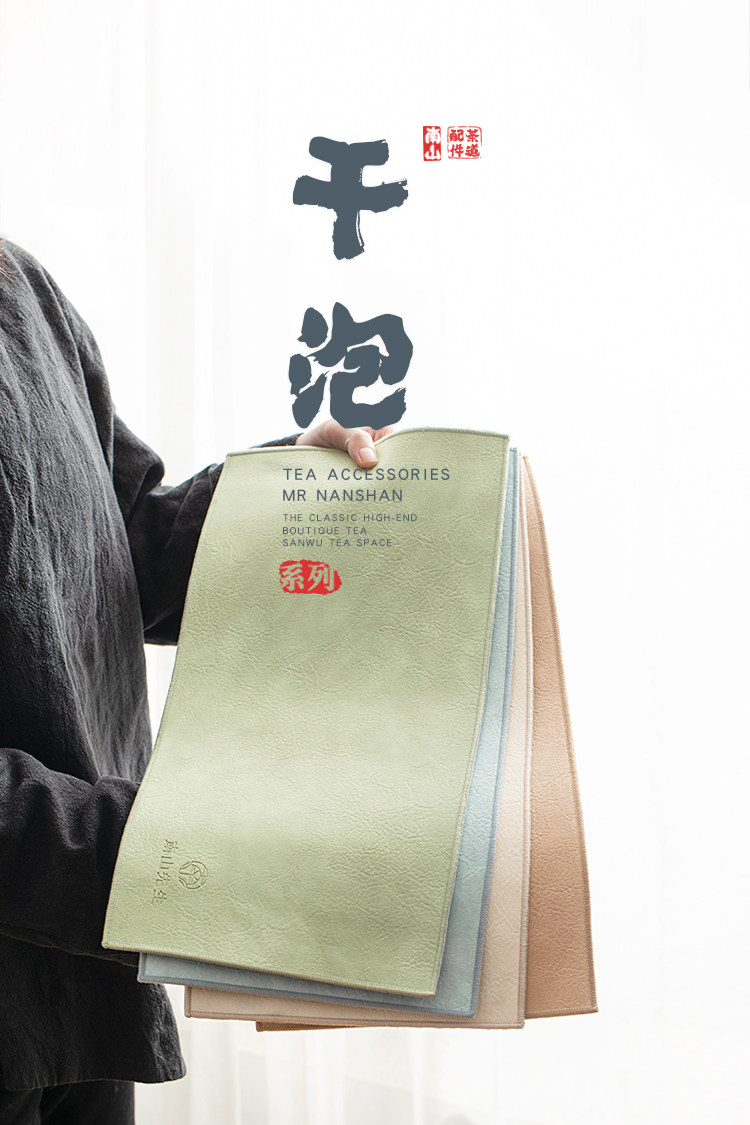 干泡
南山
茶道
配件
TEA ACCESSORIES
MR NANSHAN
THE CLASSIC HIGH-END
BOUTIQUE TEA
SANWU TEA SPACE
系列
南山先生